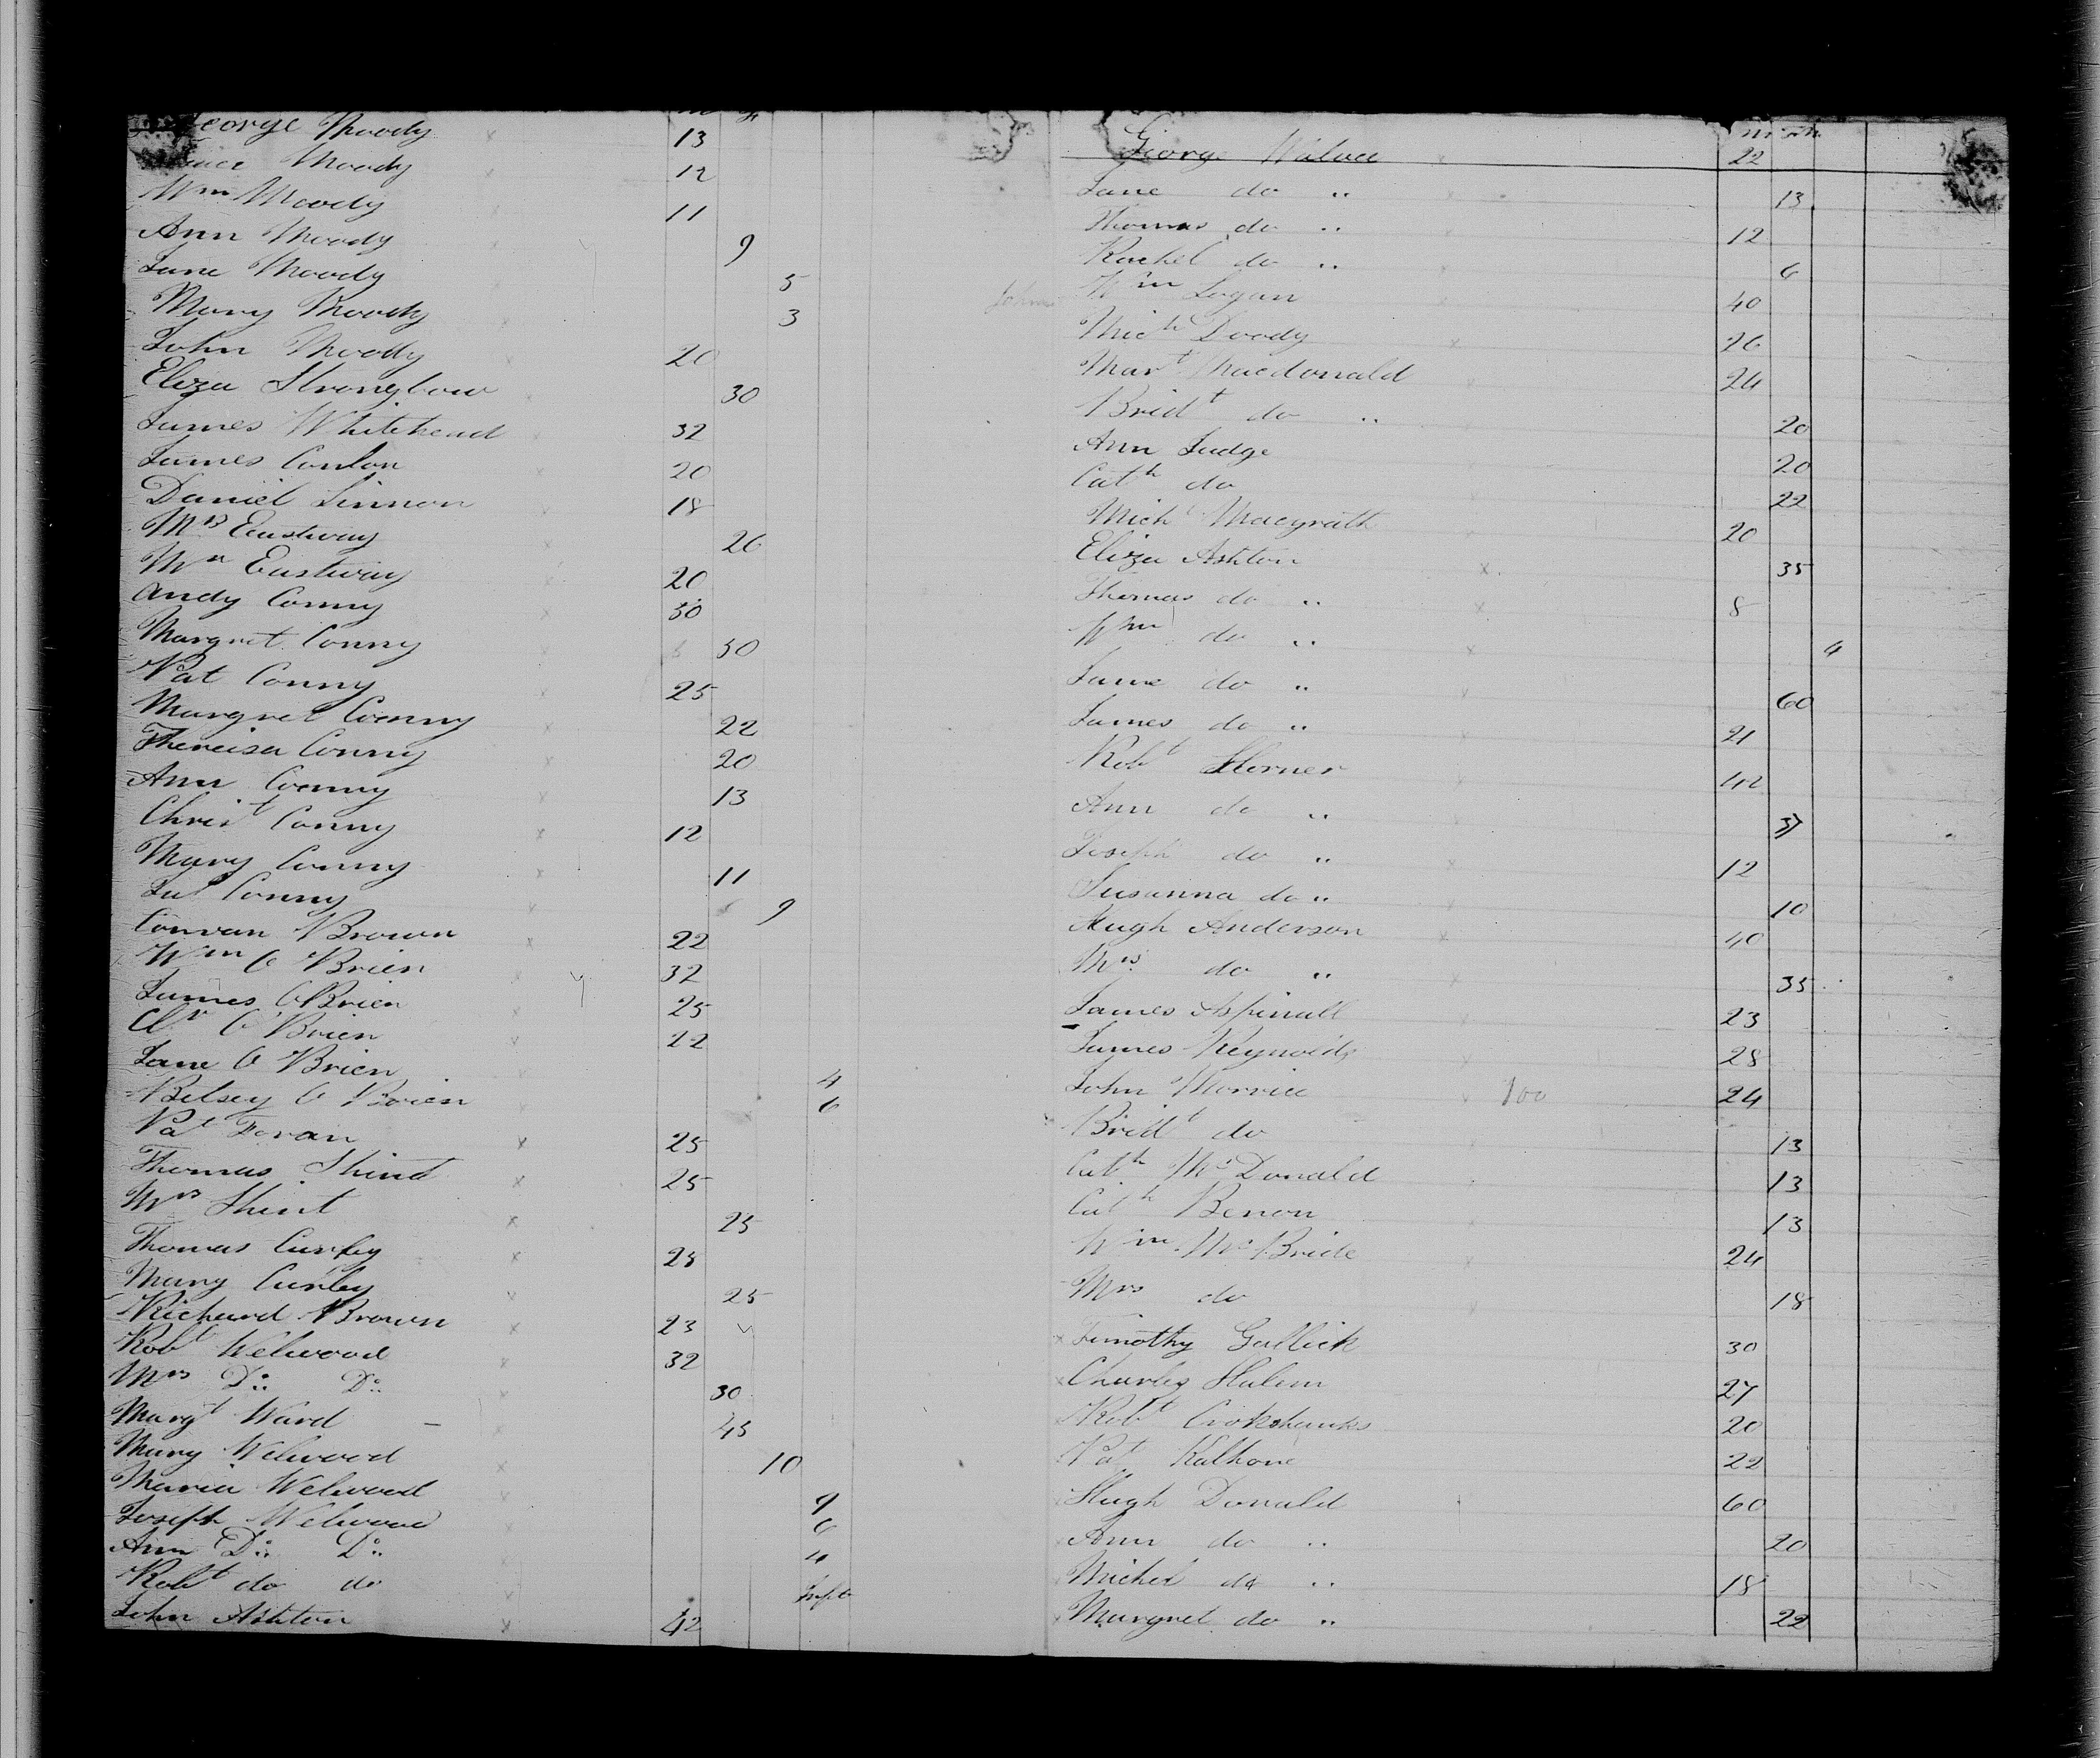 George Moody 13
Moody 12
Wm Moody 11
Ann Moody 9
Jane Moody 5
Mary Moody 3
John Moody 20
Eliza Strongbow 30
James Whitehead 32
James Conlon 20
Daniel Linnon 18
Mrs Eastway 26
Mr Eastway 20
Andy Conny 30
Margret Conny 30
Pat Conny 25
Margret Conny 22
Thereisa Conny 20
Ann Conny 13
Christ Conny 12
Mary Conny 11
Conny 9
Brown 22
Wm O Brien 32
James O Brien 25
O Brien 22
Jane O Brien 4
Betsey O Brien 6
Pat Foran 25
Thomas Shint 25
Mrs Shint 25
Thomas Curley 25
Mary Curley 25
Richard Brown 23
Robt Welwood 32
Mrs Do Do 30
Margt Ward 45
Mary Welwood 10
Maria Welwood 9
Joseph Welwood 6
Ann Do Do 4
Robt do do Inft
John Ashton 42
George Walace 22
Jane do " 13
Thomas do " 12
Rachel do " 6
John Wm Logan 40
Mich Doody 26
Mart Macdonald 24
Bridt do " 20
Ann Judge 20
Cath do 22
Mich Macgrath 20
Eliza Ashton 35
Thomas do " 8
Wm do " 4
Jane do " 60
James do " 21
Robt Horner 42
Ann do " 37
Joseph do " 12
Susanna do " 10
Hugh Anderson 40
Mrs do " 35
James Aspinall 23
James Reynolds 28
John Morrice 100 24
Bridt do 13
Cath McDonald 13
Cath Benon 13
Wm McBride 24
Mrs do 18
Timothy Gallick 30
Charles 27
Robt Crokshanks 20
Pat Kalhone 22
Hugh Donald 60
Ann do " 20
Michel do " 18
Margret do " 22